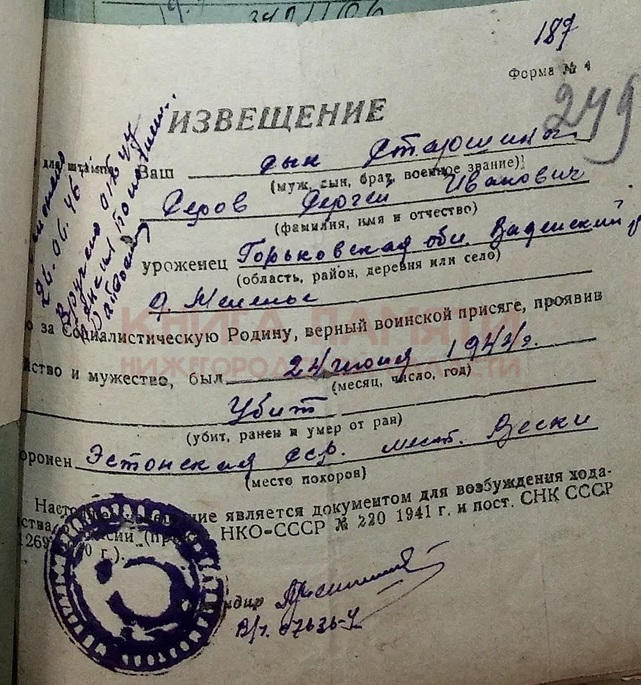 187
Форма № 4
249
ИЗВЕЩЕНИЕ
для штампа
26.06.46
Вручено
Ваш сын старшина
(муж, сын, брат, военное звание)
Серов Сергей Иванович
(фамилия, имя и отчество)
уроженец Горьковская обл. Вадский р
(область, район, деревня или село)
д.
о за Социалистическую Родину, верный воинской присяге, проявив
йство и мужество, был 24 июля 1944г.
(месяц, число, год)
Убит
(убит, ранен и умер от ран)
оронен Эстонская сср. мест. Вески
(место похорон)
Настоящее извещение является документом для возбуждения хода-
НКО-СССР № 220 1941 г. и пост. СНК СССР
1269 г.).
В/ч. 07636-У
КНИГА ПАМЯТИ
НИЖЕГОРОДСКОЙ ОБЛАСТИ